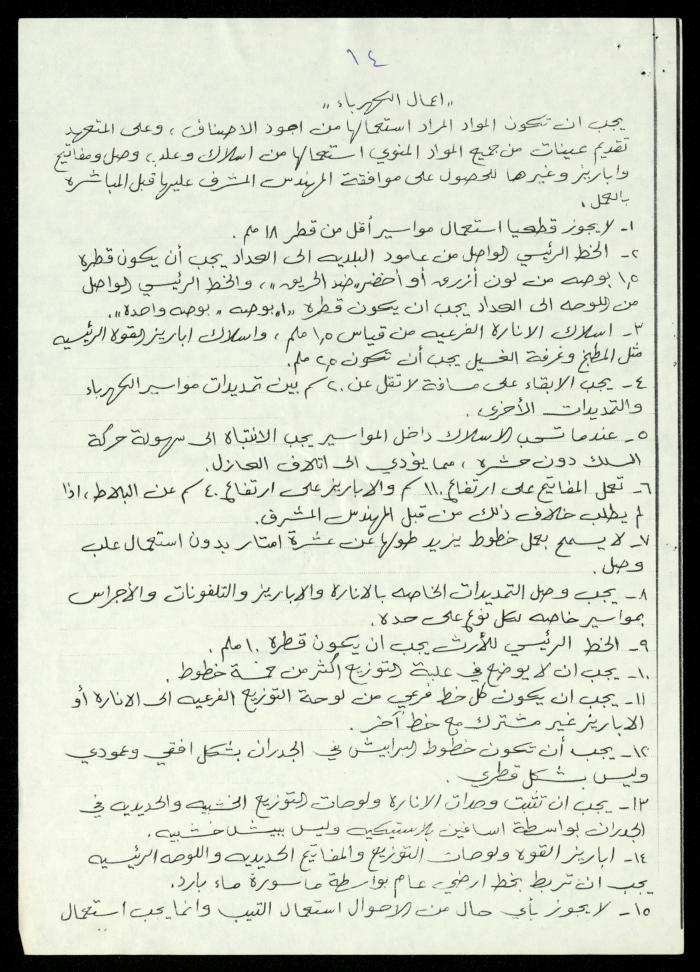 ١٤
"اعمال الكهرباء"
يجب ان تكون المواد المراد استعمالها من اجود الاصناف ، وعلى المتعهد
تقديم عينات من جميع المواد المنوي استعمالها من اسلاك وعلب وصل ومفاتيح
واباريز وغيرها للحصول على موافقة المهندس المشرف عليها قبل المباشرة
بالعمل .
١- لا يجوز قطعيا استعمال مواسير أقل من قطر ١٨ ملم .
٢- الخط الرئيسي الواصل من عامود البلديه الى العداد يجب أن يكون قطره
١,٥ بوصه من لون أزرق أو أخضر "ضد الحريق" ، والخط الرئيسي الواصل
من اللوحه الى العداد يجب ان يكون قطره "١" بوصه "بوصه واحدة".
٣- اسلاك الانارة الفرعيه من قياس ١,٥ ملم ، واسلاك اباريز القوه الرئيسيه
مثل المطبخ وغرفة الغسيل يجب أن تكون ٢,٥ ملم.
٤- يجب الابقاء على مسافة لا تقل عن ٢٠ سم بين تمديدات مواسير الكهرباء
والتمديدات الأخرى .
٥- عندما تسحب الاسلاك داخل المواسير يجب الانتباه الى سهولة حركة
السلك دون حشره ، مما يؤدي الى اتلاف العازل.
٦- تعمل المفاتيح على ارتفاع ١١٠ سم والاباريز على ارتفاع ٤٠ سم عن البلاط ، اذا
لم يطلب خلاف ذلك من قبل المهندس المشرف.
٧- لا يسمح بعمل خطوط يزيد طولها عن عشرة امتار بدون استعمال علب
وصل .
٨- يجب وصل التمديدات الخاصه بالانارة والاباريز والتلفونات والأجراس
بمواسير خاصه لكل نوع على حده .
٩- الخط الرئيسي للأرث يجب ان يكون قطره ١٠ ملم .
١٠- يجب ان لا يوضع في علبة التوزيع اكثر من خمسة خطوط .
١١- يجب ان يكون كل خط فرعي من لوحة التوزيع الفرعيه الى الانارة أو
الاباريز غير مشترك مع خط آخر .
١٢- يجب أن تكون خطوط البرابيش في الجدران بشكل افقي وعمودي
وليس بشكل قطري .
١٣- يجب ان تثبت وحدات الانارة ولوحات التوزيع الخشبيه والحديديه في
الجدران بواسطة اسافين بلاستيكيه وليس ببيش خشبيه .
١٤- اباريز القوه ولوحات التوزيع والمفاتيح الحديديه واللوحه الرئيسيه
يجب ان تربط بخط ارضي عام بواسطة ماسورة ماء بارد.
١٥- لا يجوز بأي حال من الاحوال استعمال التيب وانما يجب استعمال